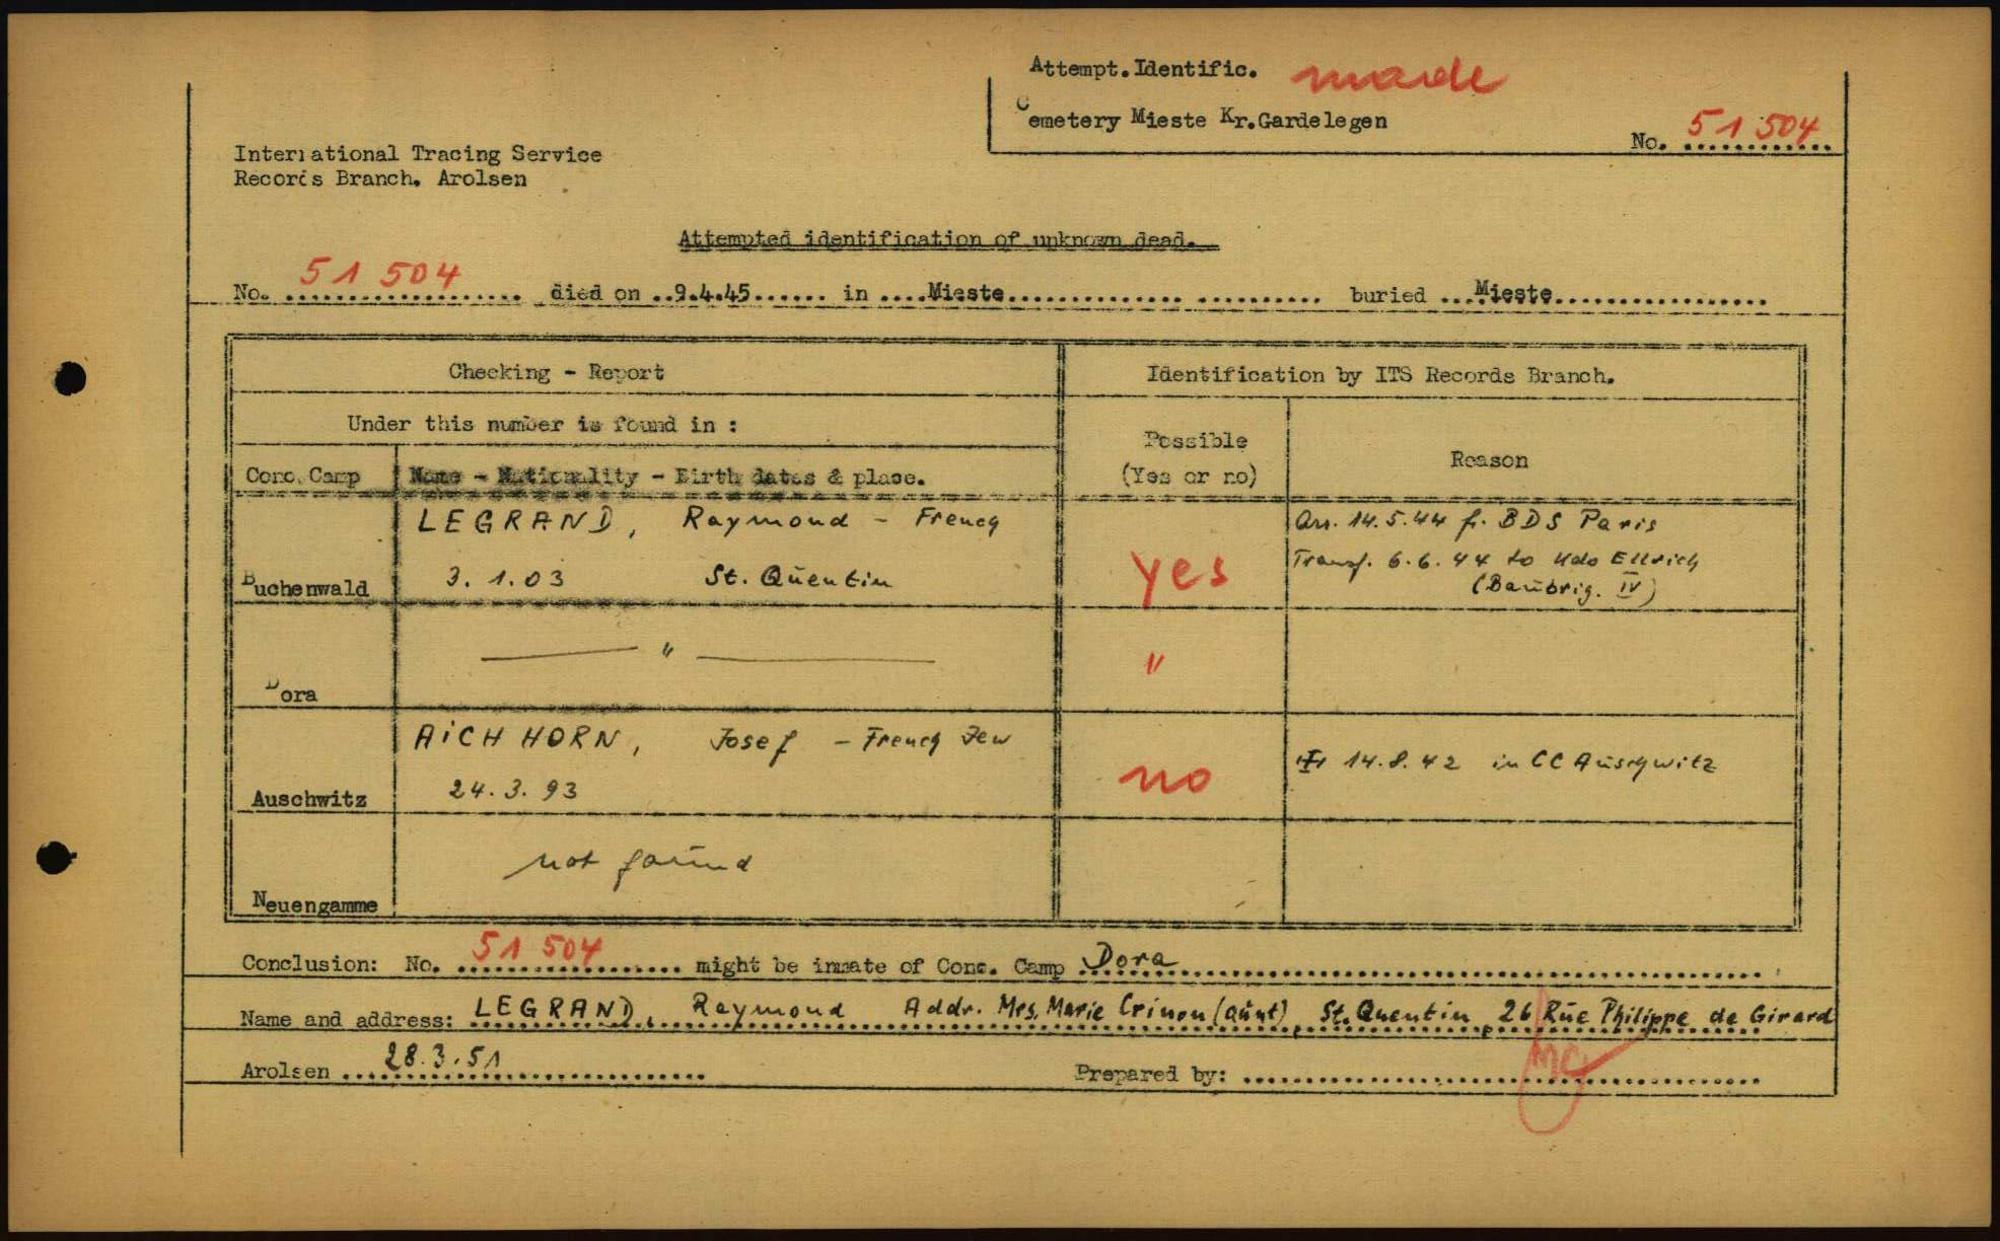 Attempt. Identific. made
Cemetery Mieste Kr. Gardelegen
No. 51 504
International Tracing Service
Records Branch. Arolsen
Attempted identification of unknown dead.
No. 51 504 died on 9.4.45 in Mieste buried Mieste
Checking - Report
Identification by ITS Records Branch.
Under this number is found in :
Possible
(Yes or no)
Reason
Conc. Camp
Name - Nationality - Birth dates & place.
Buchenwald
LEGRAND, Raymond - French
3. 1. 03 St. Quentin
yes
Arr. 14.5.44 fr. BDS Paris
Transf. 6.6.44 to Kdo Ellrich
(Baubrig. IV)
Dora
— " —
"
Auschwitz
AICHHORN, Josef - French Jew
24. 3. 93
no
14.8.42 in CC Auschwitz
Neuengamme
not found
Conclusion: No. 51 504 might be inmate of Conc. Camp Dora
Name and address: LEGRAND, Raymond Addr. Mrs. Marie Crinon (aunt), St. Quentin, 26 Rue Philippe de Girard
Arolsen 28.3.51
Prepared by: